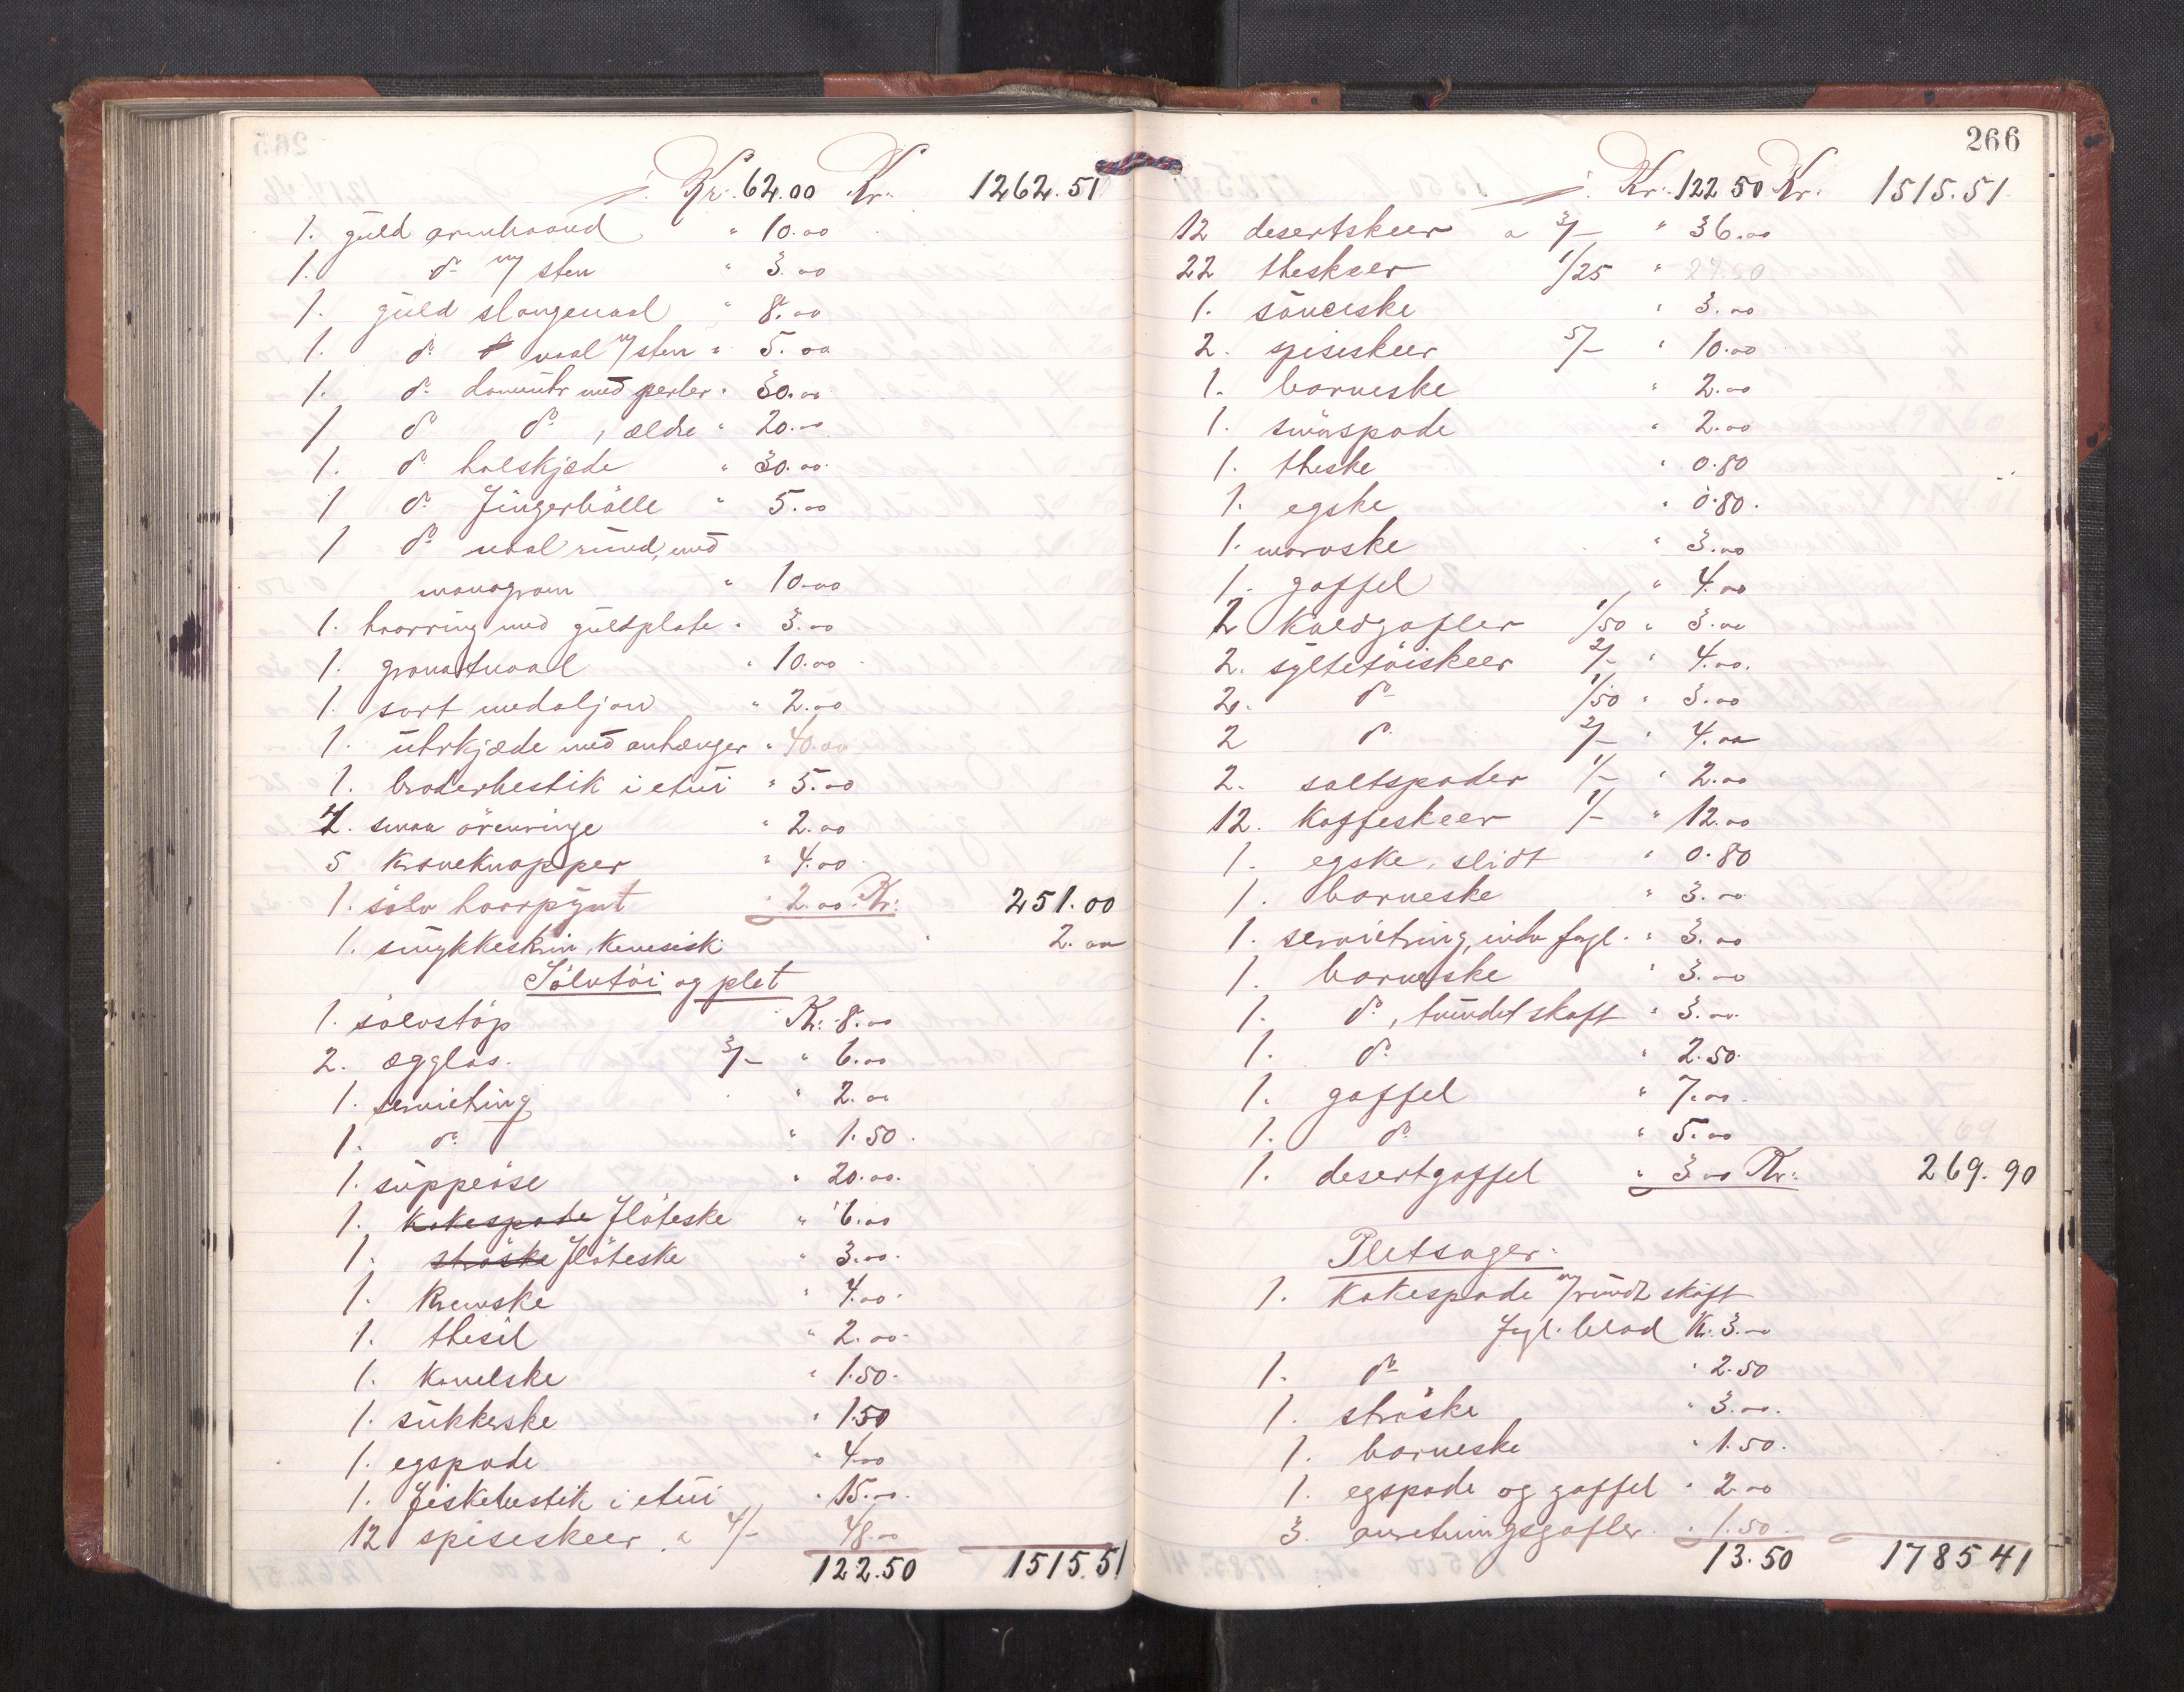 Kr. 62.00 Kr. 1262.51
1. guld armbaand " 10.00
1. do m/ sten " 3.00
1. guld slangenaal " 8.00
1. do naal m/ sten " 5.00
1. do dameuhr med perler " 30.00
1 do do, ældre " 20.00
1. do halskjæde " 30.00
1 do fingerbölle " 5.00
1 do naal rund, med
monogram " 10.00
1. haarring med guldplate " 3.00
1. granatnaal " 10.00
1. sort medaljon " 2.00
1. uhrkjæde med anhænger " 40.00
1. broderbestik i etui " 5.00
2. smaa örenringe " 2.00
5 kraveknapper " 4.00
1. sölv haarpynt " 2.00 Kr: 251.00
1. smykkeskrin, kinesisk " 2.00
Sölvtöi og plet
1. sölvstöp Kr: 8.00
2. ægglas. 3/- " 6.00
1. servietring " 2.00
1. do " 1.50
1. suppeöse " 20.00
1. kakespade flöteske " 6.00
1. ströske flöteske " 3.00
1. Kremske " 4.00
1. thesil " 2.00
1. Kanelske " 1.50
1. sukkerske " 1.50
1. egspade " 4.00
1. fiskebestik i etui " 15.00
12 spiseskeer a 4/- 48.00
122.50 1515.51
266
Kr. 122 50 Kr. 1515.51
12 desertskeer a 3/- " 36.00
22 theskeer 1/25 " 27.50
1. sauceske " 3.00
2. spiseskeer 5/- " 10.00
1. barneske " 2.00
1. smörspade " 2.00
1. theske " 0.80
1. egske " 0.80
1. marvske " 3.00
1. gaffel " 4.00
2 Koldgafler 1/50 " 3.00
2. syltetöiskeer 2/- " 4.00
2. do 1/50 " 3.00
2 do 2/- " 4.00
2. saltspader 1/- " 2.00
12. Kaffeskeer 1/- " 12.00
1. egske, slidt " 0.80
1. barneske " 3.00
1. servietring, indv fogl. " 3.00
1. barneske " 3.00
1. do, tvundet skaft " 3.00
1. do " 2.50
1. gaffel " 7.00
1. do " 5.00
1. desertgaffel " 3.00 Kr: 269.90
Pletsager:
1. Kakespade m/ rundt skaft
fogl. blad K. 3.00
1. do " 2.50
1. ströske " 3.00
1. barneske " 1.50
1. egspade og gaffel " 2.00
3. anretningsgafler " 1.50
13.50 1785 41